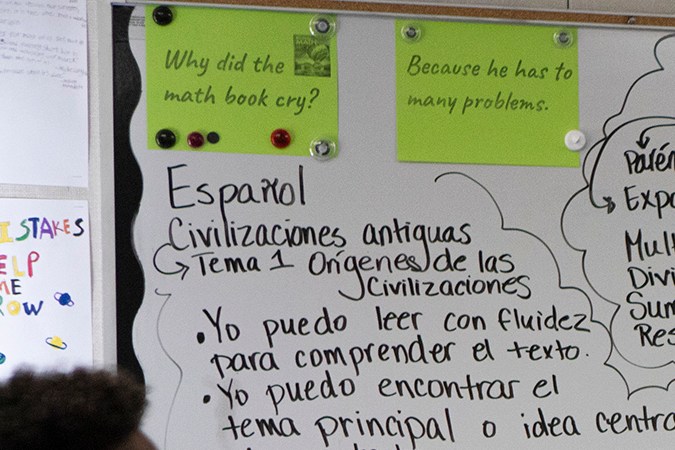 Why did the
math book cry?
Because he has to
many problems.
Español
Civilizaciones antiguas
Tema 1 Orígenes de las
Civilizaciones
• Yo puedo leer con fluidez
para comprender el texto.
• Yo puedo encontrar el
tema principal o idea centra
Parén
Expo
Mult
Divi
Sum
Res
ISTAKES
ELP
ME
ROW